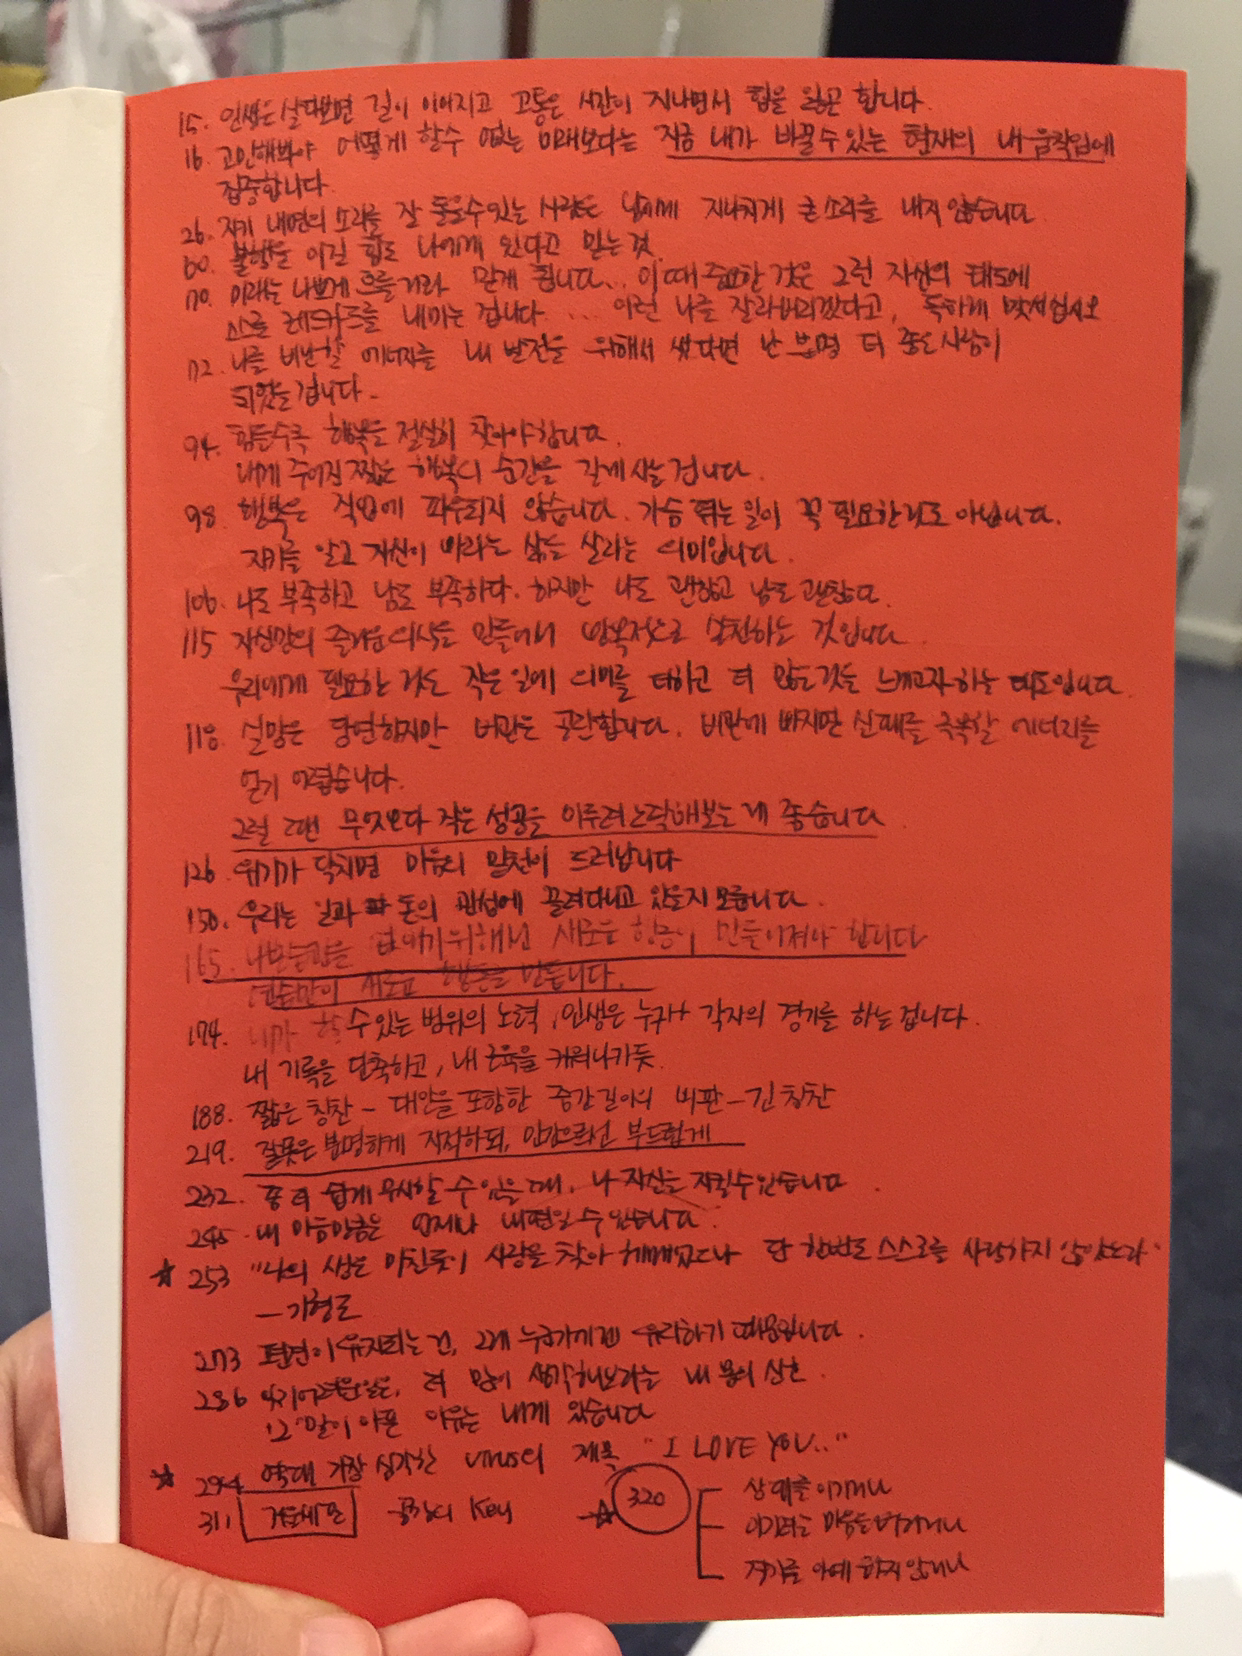 15. 인생은 살다보면 길이 이어지고 고통은 시간이 지나면서 힘을 잃곤 합니다.
16. 고민해봐야 어떻게 할수 없는 미래보다는 지금 내가 바꿀수있는 현재의 내 움직임에
집중합니다.
26. 자기 내면의 소리를 잘 들을수있는 사람은 남에게 지나치게 큰소리를 내지 않습니다.
60. 불행을 이길 힘도 나에게 있다고 믿는 것.
70. 미래는 나쁘게 흐를거라 믿게 됩니다... 이때 중요한 것은 그런 자신의 태도에
스스로 레드카드를 내미는 겁니다. ... 이런 나를 잘라버리겠다고, 독하게 맞서십시오
72. 나를 비난할 에너지를 내 발전을 위해서 썼다면 난 분명 더 좋은사람이
되었을겁니다.
94. 힘들수록 행복을 절실히 찾아야합니다.
내게 주어진 짧은 행복의 순간을 길게 사는 겁니다.
98. 행복은 직업에 좌우되지 않습니다. 가슴 뛰는 일이 꼭 필요한것도 아닙니다.
자기를 알고 자신이 바라는 삶을 살라는 의미입니다.
106. 나도 부족하고 남도 부족하다. 하지만 나도 괜찮고 남도 괜찮다.
115 자신만의 즐거운 의식을 만들어서 반복적으로 실천하는 것입니다.
우리에게 필요한 것도 작은 일에 의미를 더하고 더 많은 것을 느끼고자 하는 태도입니다.
118. 실망은 당연하지만 비관은 곤란합니다. 비관에 빠지면 실패를 극복할 에너지를
얻기 어렵습니다.
그럴 땐 무엇보다 작은 성공을 이루려 노력해보는 게 좋습니다
126. 위기가 닥치면 마음의 밑천이 드러납니다
150. 우리는 일과 돈의 관성에 끌려다니고 있을지 모릅니다.
165. 나쁜습관을 위해선 새로운 행동이 만들어져야 합니다
연습만이 새로운 행동을 만듭니다.
174. 내가 할 수 있는 범위의 노력, 인생은 누구나 각자의 경기를 하는 겁니다.
내 기록을 단축하고, 내 근육을 키워나가듯.
188. 짧은 칭찬 – 대안을 포함한 중간길이의 비판 – 긴 칭찬
219. 잘못은 분명하게 지적하되, 인간으로선 부드럽게
232. 좀 더 쉽게 무시할 수 있을 때, 나 자신을 지킬수있습니다.
245. 내 마음만큼은 언제나 내편일 수 있습니다.
☆ 253 "나의 생은 미친듯이 사랑을 찾아 헤매었으나 단 한번도 스스로를 사랑하지 않았노라"
– 기형도
273 편견이 유지되는 건, 그게 누군가에겐 유리하기 때문입니다.
286 더 많이 생각해보라는 내 몸의 신호
그 말이 아픈 이유는 내게 있습니다
☆ 294 역대 가장 심각한 virus의 제목 "I LOVE YOU.."
311 Key
☆ 320
상대를 이기거나